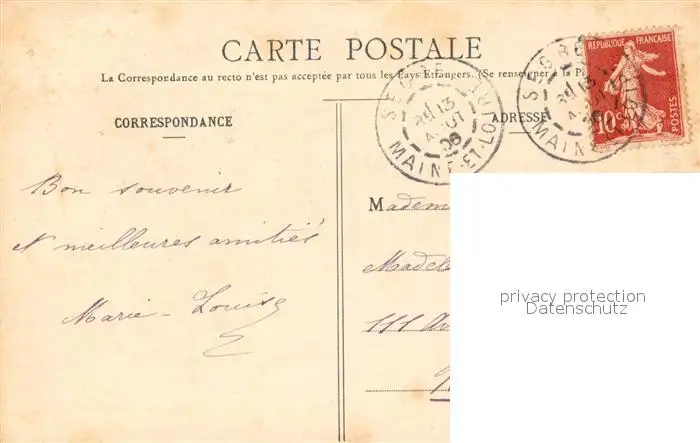 CARTE POSTALE
La Correspondance au recto n'est pas acceptée par tous les Pays Etrangers. (Se renseigner à la P
CORRESPONDANCE
ADRESSE
SEGRÉ
13
AOUT
06
MAINE-ET-LOIRE
SEGRÉ
13
AOUT
MAINE
REPUBLIQUE FRANÇAISE
10c
POSTES
Bon souvenir
et meilleures amitiés
Marie-Louise
Madem
Madel
111 Av
privacy protection
Datenschutz